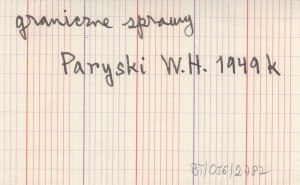 graniczne sprawy
Paryski W.H. 1949 k
BJ/056/2482